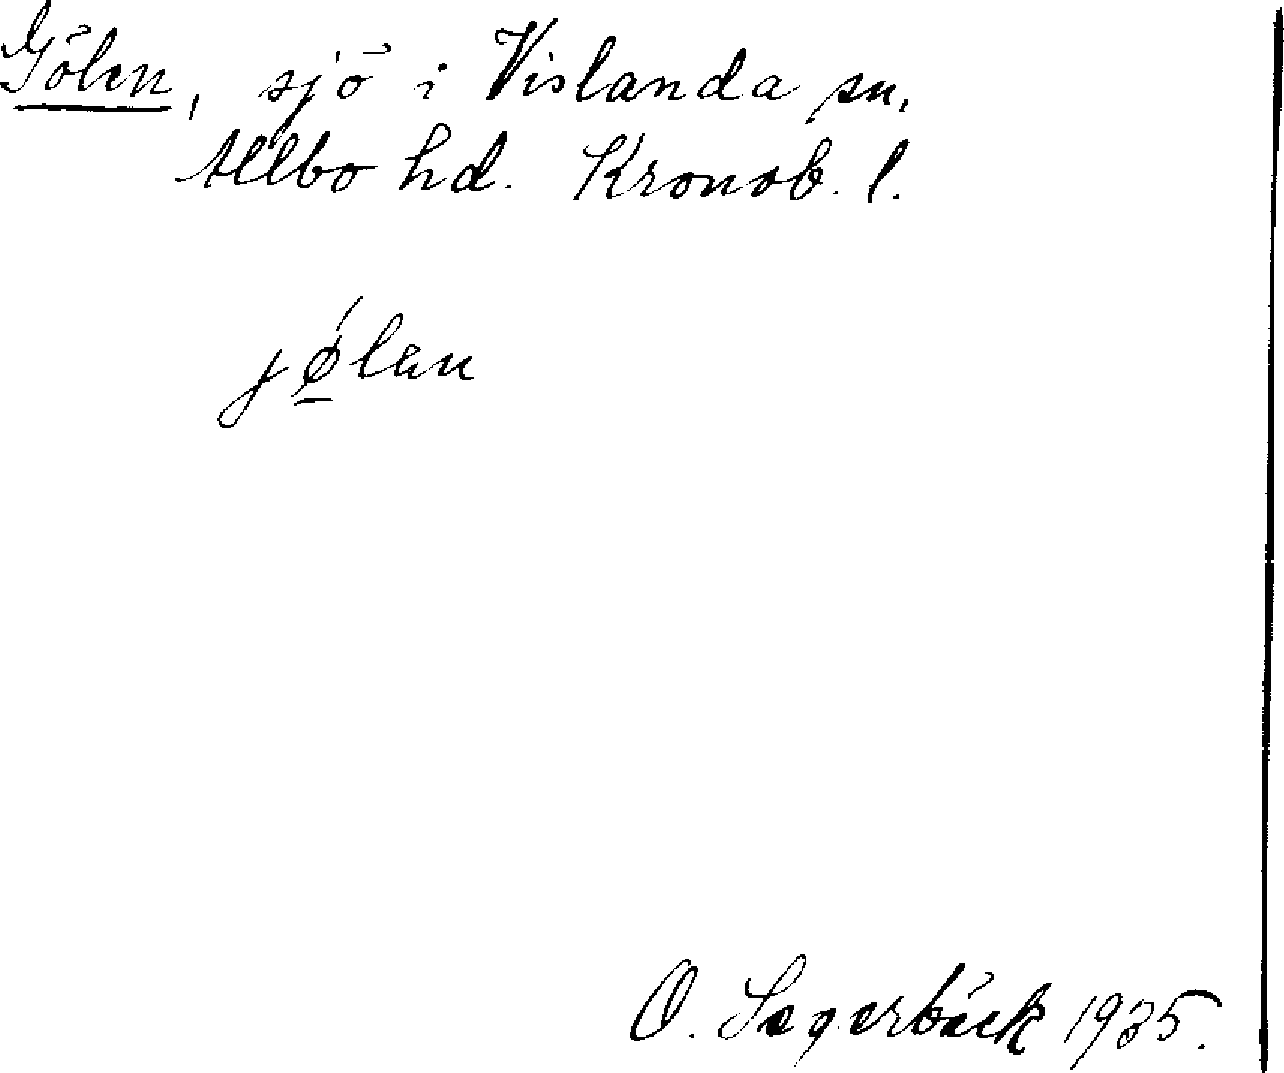 Gölen, sjö i Vislanda sn.
Allbo hd. Kronob. l.
jǿ̱lan
O. Segerbäck 1935.